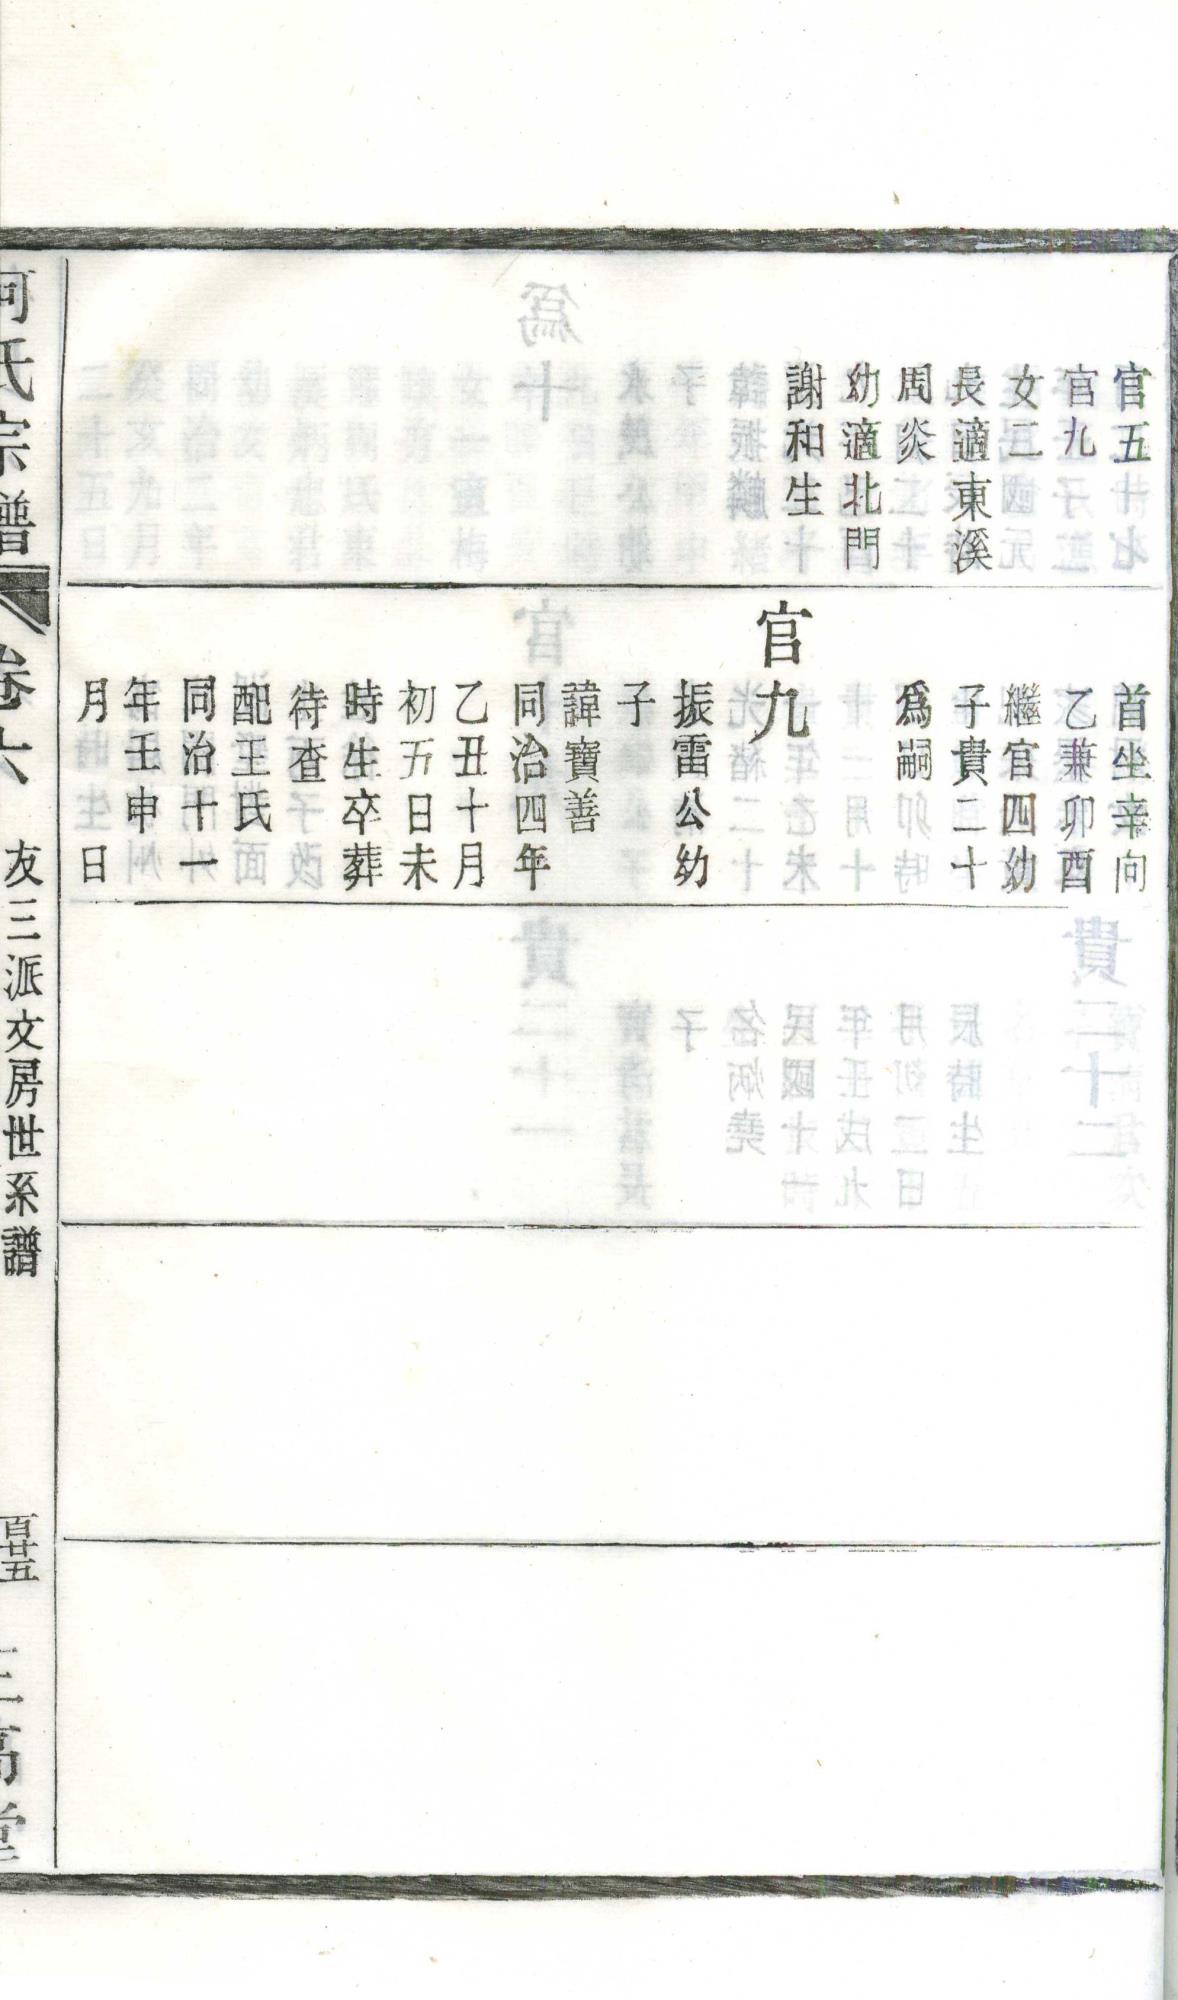 官五
官九
女二
長適東溪
周炎
幼適北門
謝和生
首坐辛向
乙兼卯酉
繼官四幼
子貴二十
爲嗣
官九
振雷公幼
子
諱寶善
同治四年
乙丑十月
初五日未
時生卒葬
待查
配王氏
同治十一
年壬申
月日
氏宗譜
卷六
友三派文房世系譜
百廿五
堂